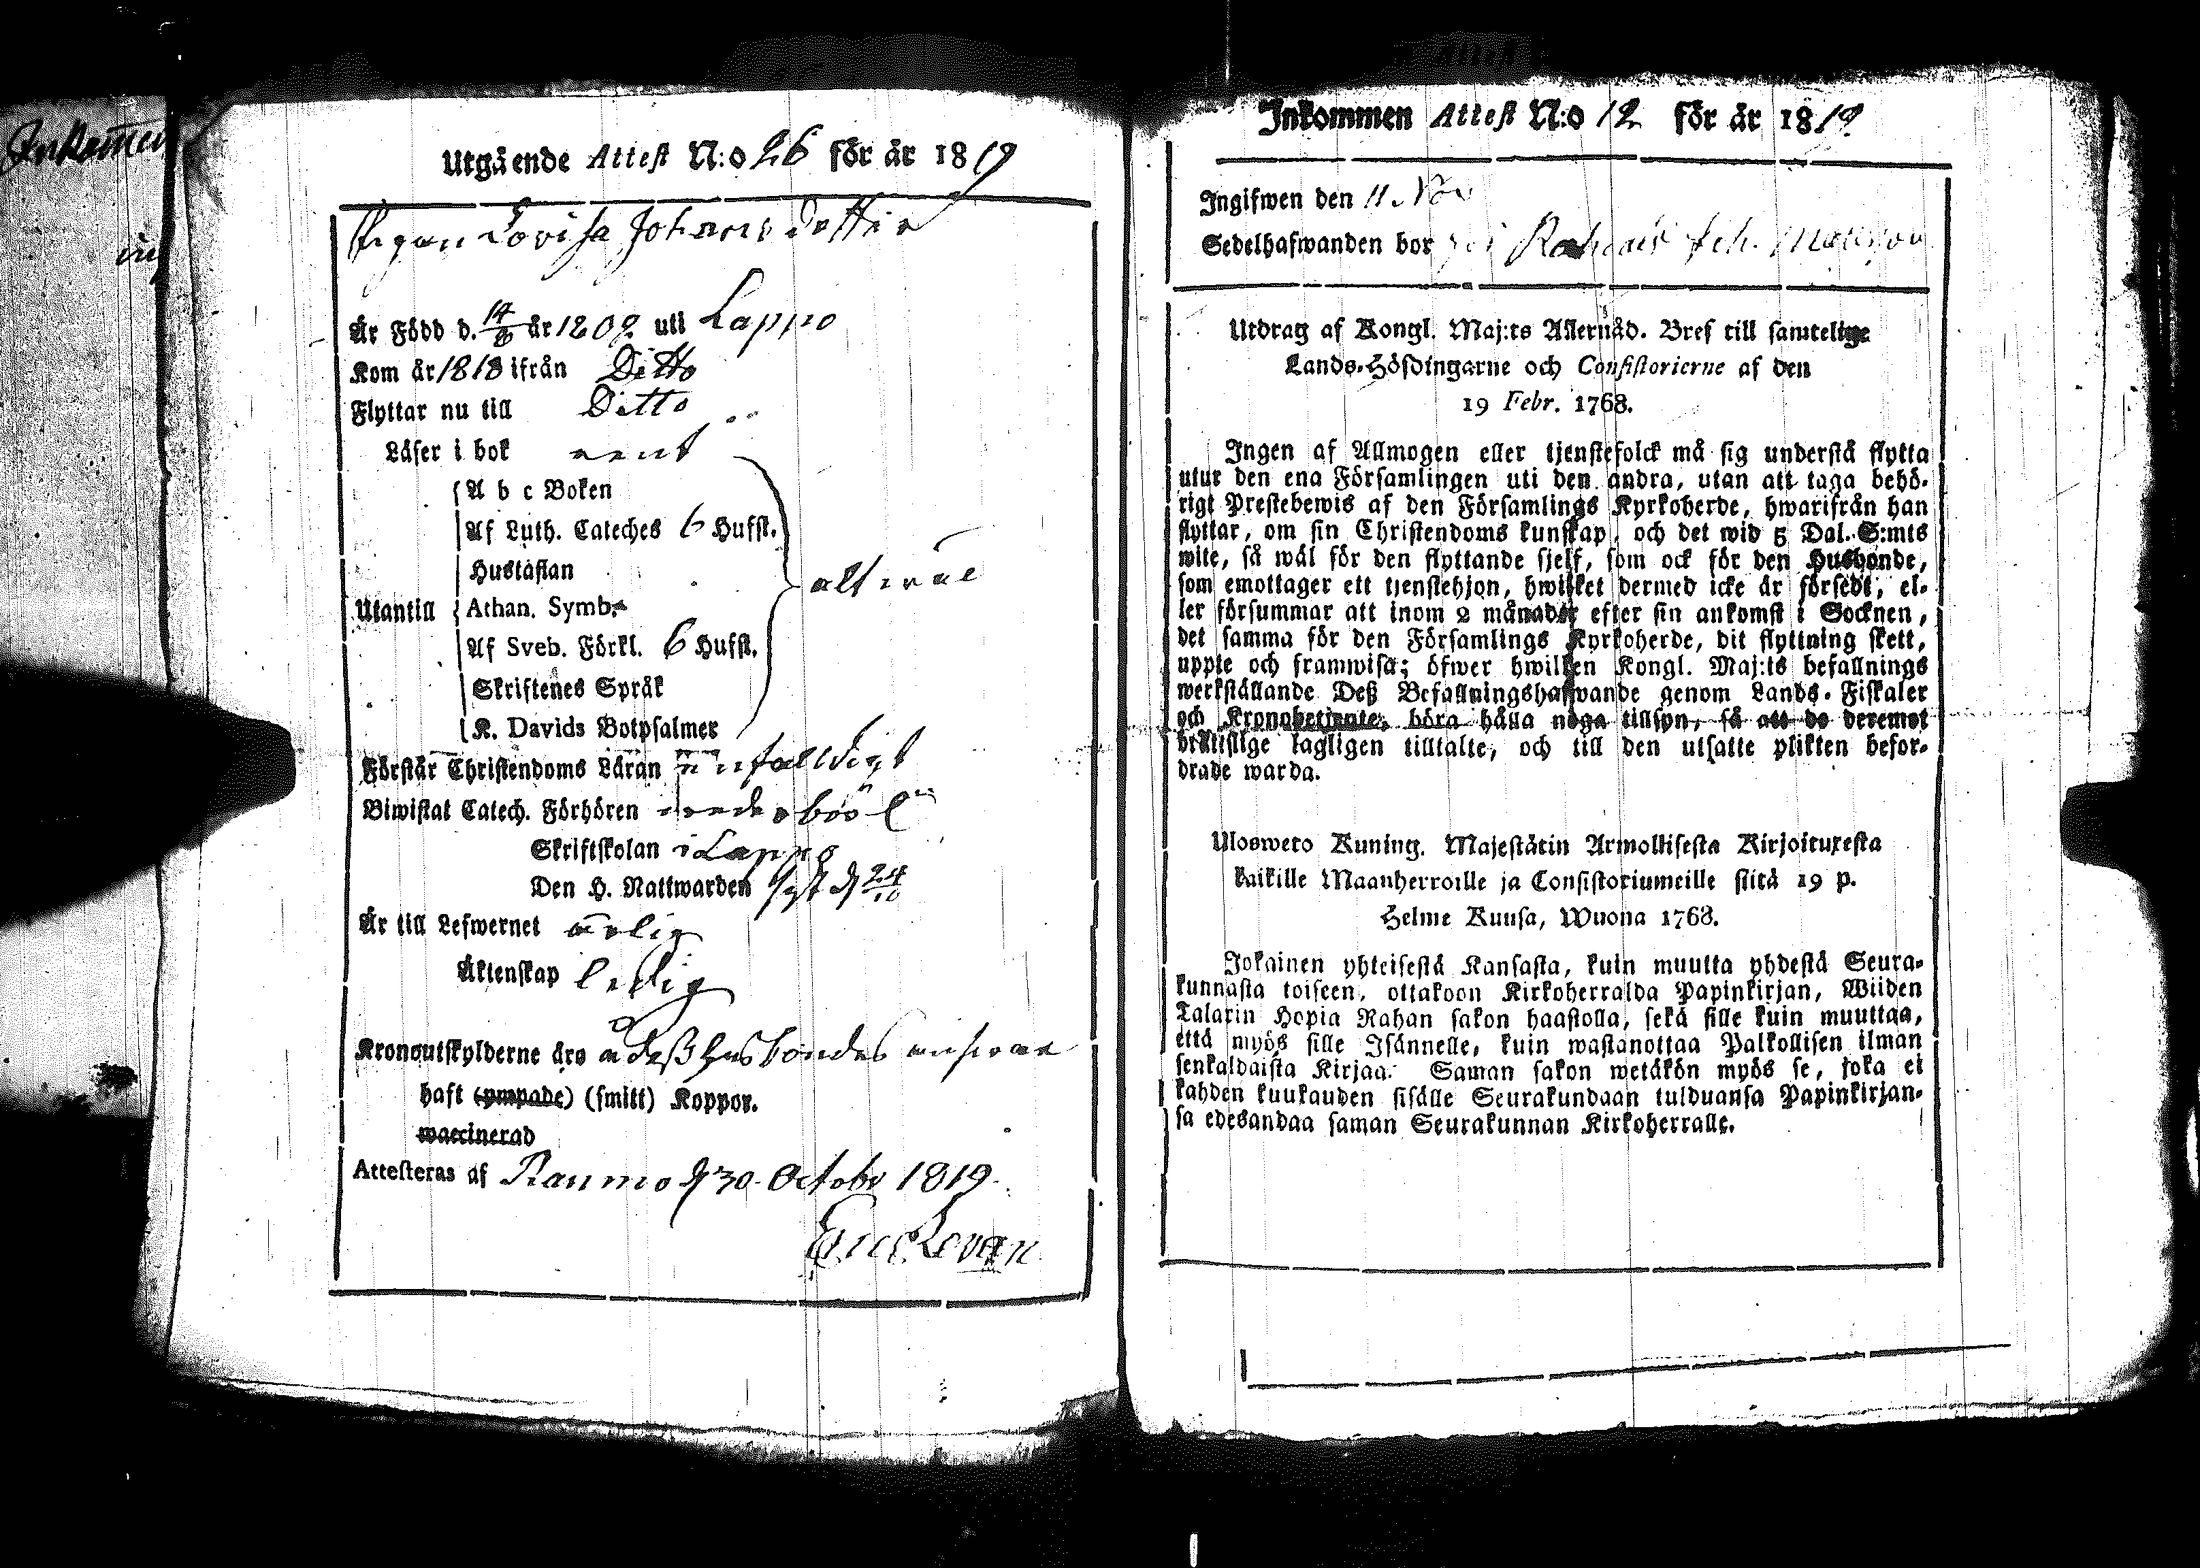 Inkommen
Utgående Attest N:o 26 för år 1819
Pigan Lovisa Johansdotter
Är Född d. 14/8 år 1802 uti Lappo
Kom år 1818 ifrån Ditto
Flyttar nu till Ditto
Läser i bok rent
A b c Boken
Af Luth. Cateches 6 Hufst.
Hustaflan
Utantill
Athan. Symb.
alt wäl
Af Sveb. Förkl. 6 Hufst.
Skriftenes Språk
K. Davids Botpsalmer
Förstår Christendoms Läran enfaldigt
Biwistat Catech. Förhören
Skriftskolan i Lappo
Den H. Nattwarden sist d 24/10
Är till Lefwernet ärlig
Äktenskap ledig
Kronoutskylderne äro å deß husbondes
haft (ympade) (smitt) Koppor.
waccinerad
Attesteras af Raumo d 30 Octobr 1819.
Eric Levan
Inkommen Attest N:o 12 för år 1819
Ingifwen den 11 Nov
Sedelhafwanden bor
Utdrag af Kongl. Maj:ts Allernåd. Bref till samtelige
Lands-Höfdingarne och Consistorierne af den
19 Febr. 1768.
Ingen af Allmogen eller tjenstefolck må sig understå flytta
utur den ena Församlingen uti den andra, utan att taga behö-
rigt Prestebewis af den Församlings Kyrkoherde, hwarifrån han
flyttar, om sin Christendoms kunskap, och det wid 5 Dal. S:mts
wite, så wäl för den flyttande sjelf, som ock för den Husbonde,
som emottager ett tjenstehjon, hwilket dermed icke är försedt, el-
ler försummar att inom 2 månader efter sin ankomst i Socknen,
det samma för den Församlings Kyrkoherde, dit flyttning skett,
uppte och framwisa; öfwer hwilken Kongl. Maj:ts befallnings
werkställande Deß Befallningshafwande genom Lands-Fiskaler
och Kronobetjente, böra hålla noga tillsyn, så att de deremot
brättslige lagligen tilltalte, och till den utsatte plikten befor-
drade warda.
Uloswero Kuning. Majestätin Armollisesta Kirjoituxesta
kaikille Maanherroille ja Consistoriumeille siitä 19 p.
Helme Kuusa, Wuona 1768.
Jokainen yhteisestä Kansasta, kuin muutta yhdestä Seura-
kunnasta toiseen, ottakoon Kirkoherralda Papinkirjan, Wiiden
Talarin Hopia Rahan sakon haastolla, sekä sille kuin muuttaa,
että myös sille Isännelle, kuin wastanottaa Palkollisen ilman
senkaldaista Kirjaa. Saman sakon wetäkön myös se, joka ei
kahden kuukauden sisälle Seurakundaan tulduansa Papinkirjan-
sa edesandaa saman Seurakunnan Kirkoherralle.